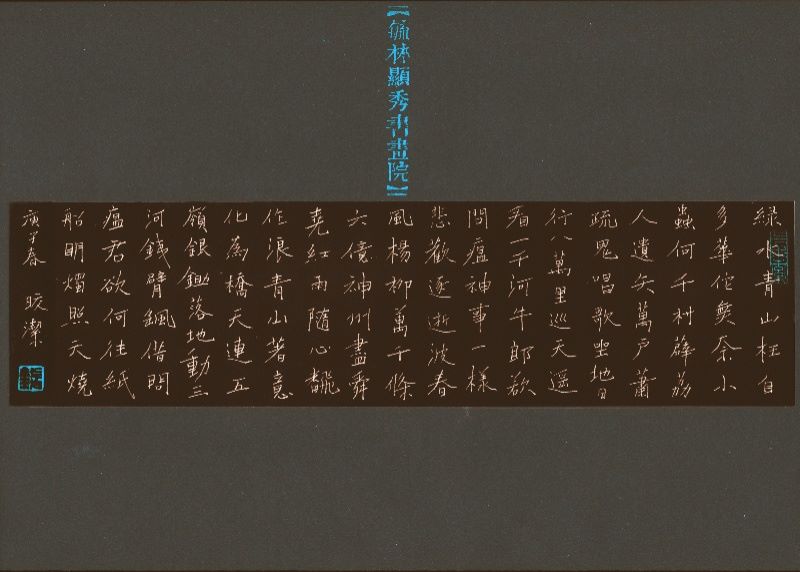 【毓林顯秀书畫院】
綠水青山枉自
多華佗無奈小
蟲何千村薜荔
人遺矢萬戶蕭
疏鬼唱歌坐地日
行八萬里巡天遥
看一千河牛郎欲
問瘟神事一樣
悲歡逐逝波春
風楊柳萬千條
六億神州盡舜
堯紅雨隨心翻
作浪青山著意
化為橋天連五
嶺銀鋤落地動三
河鐵臂飆借問
瘟君欲何往紙
船明燭照天燒
庚子春 晈潔